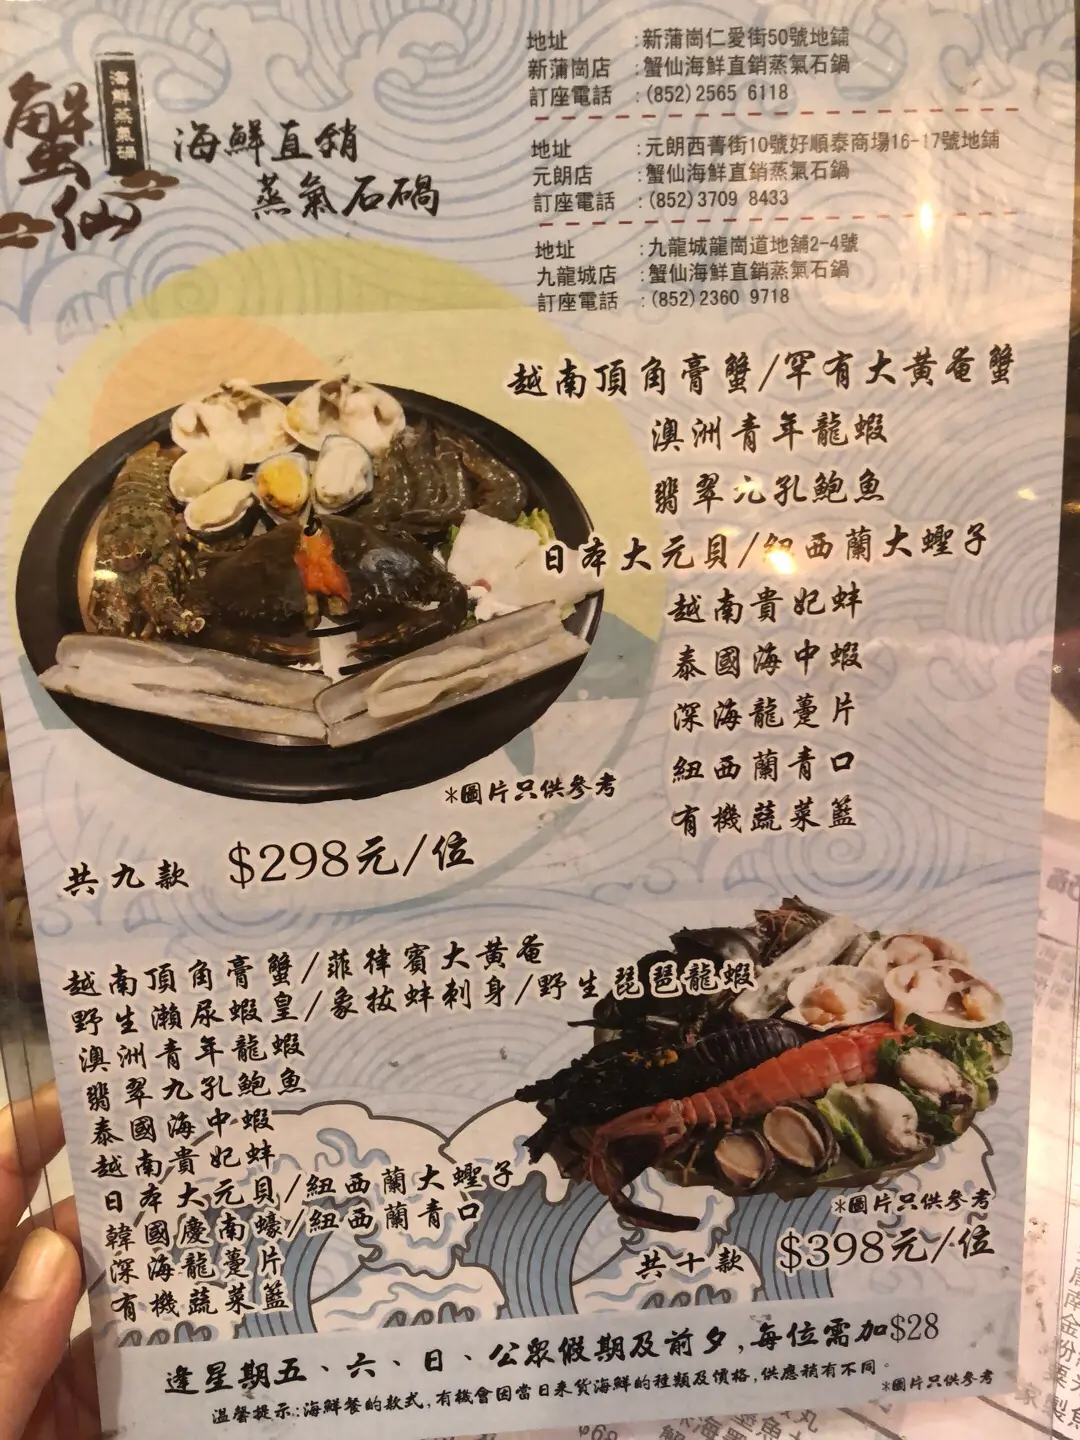 蟹仙
海鮮蒸氣石鍋
海鮮直銷
蒸氣石鍋
地址 :新蒲崗仁愛街50號地鋪
新蒲崗店 :蟹仙海鮮直銷蒸氣石鍋
訂座電話 :(852)2565 6118
地址 :元朗西菁街10號好順泰商場16-17號地鋪
元朗店 :蟹仙海鮮直銷蒸氣石鍋
訂座電話 :(852)3709 8433
地址 :九龍城龍崗道地舖2-4號
九龍城店 :蟹仙海鮮直銷蒸氣石鍋
訂座電話 :(852)2360 9718
越南頂角膏蟹/罕有大黃奄蟹
澳洲青年龍蝦
翡翠九孔鮑魚
日本大元貝/紐西蘭大蟶子
越南貴妃蚌
泰國海中蝦
深海龍躉片
紐西蘭青口
有機蔬菜籃
*圖片只供參考
共九款 $298元/位
越南頂角膏蟹/菲律賓大黃奄
野生瀨尿蝦皇/象拔蚌刺身/野生琵琶龍蝦
澳洲青年龍蝦
翡翠九孔鮑魚
泰國海中蝦
越南貴妃蚌
日本大元貝/紐西蘭大蟶子
韓國慶南蠔/紐西蘭青口
深海龍躉片
有機蔬菜籃
*圖片只供參考
共十款 $398元/位
逢星期五、六、日、公眾假期及前夕,每位需加$28
溫馨提示:海鮮餐的款式,有機會因當日來貨海鮮的種類及價格,供應稍有不同。
*圖片只供參考